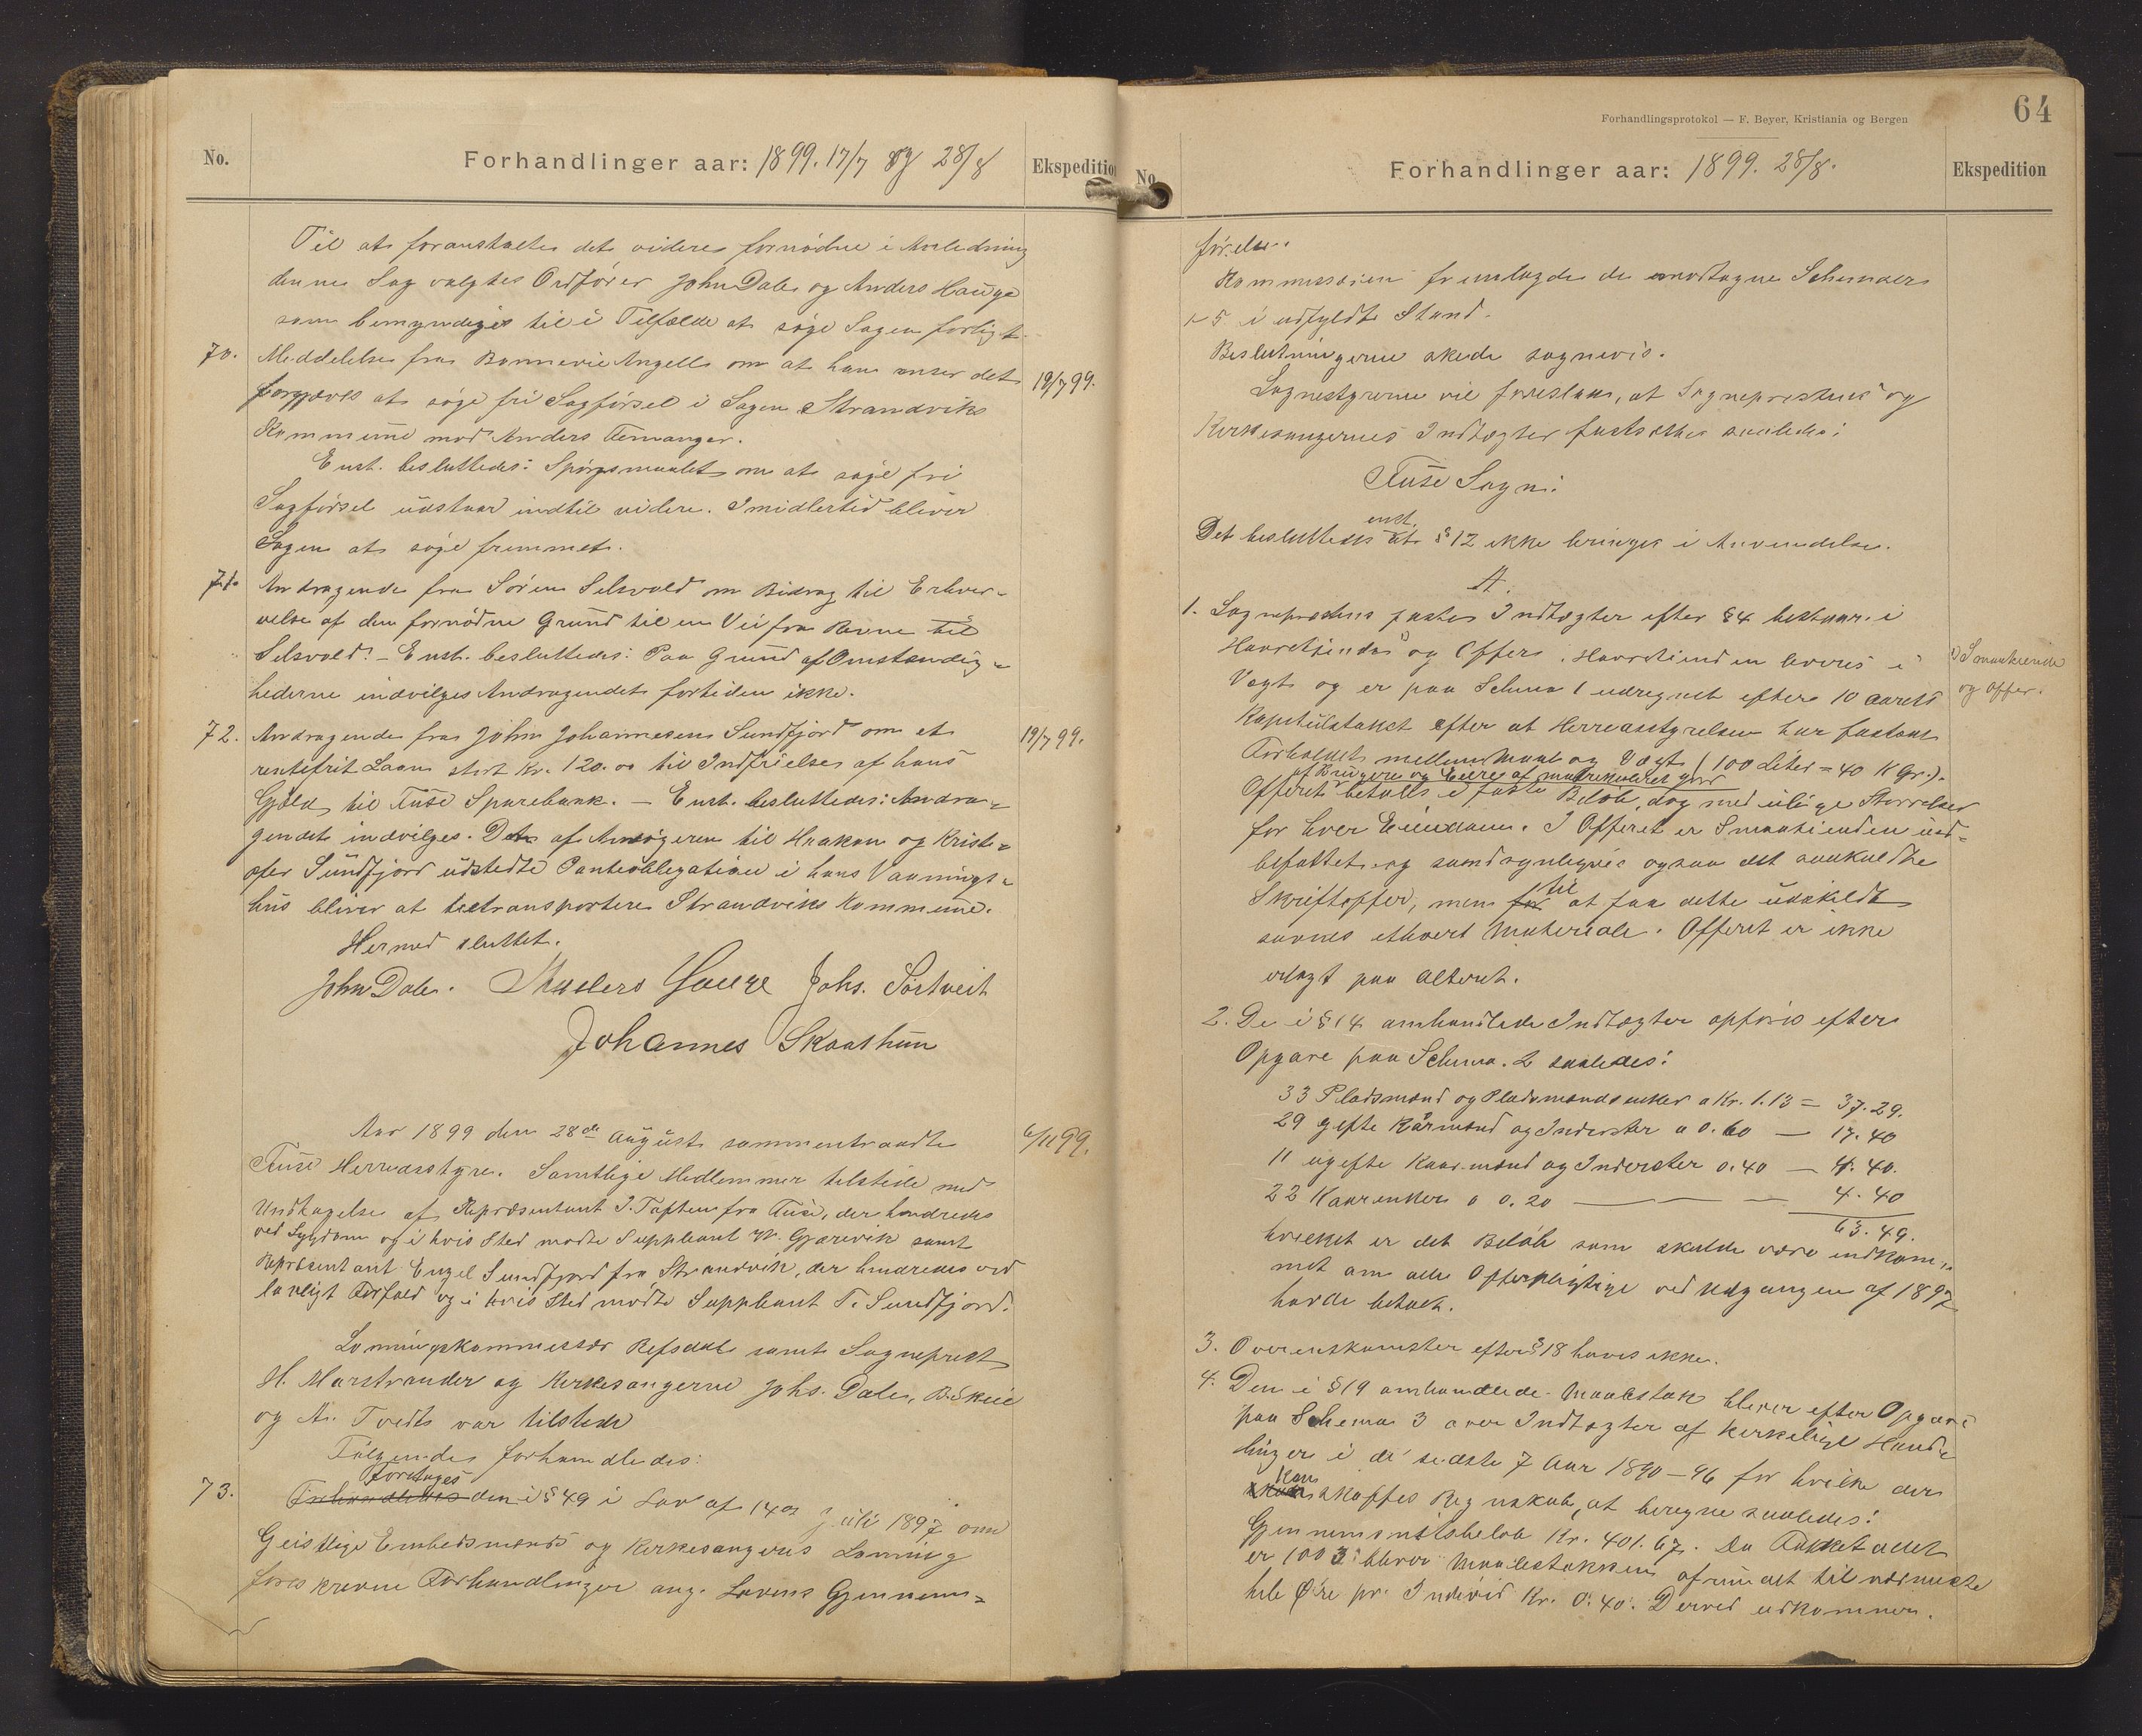 No.
Forhandlinger aar: 1899. 17/7 og 28/8
Ekspedition
Til at foranstalte det videre fornødne i Anledning
denne Sag valgtes Ordfører John Dale og Anders Hauge
som bemyndiges til i Tilfælde at søge Sagen forligt.
70. Meddelelse fra Bonnevie Angell om at han anser det 19/7 99.
forgjæves at søge fri Sagførsel i Sagen Strandviks
Kommune mod Anders Aemanger.
Enst. besluttedes: Spørgsmaalet om at søge fri
Sagførsel udstaar indtil videre. Imidlertid bliver
Sagen at søge fremmet.
71. Andragende fra Søren Selsvold om Bidrag til Erhver-
velse af den fornødne Grund til en Vei fra Ravne til
Selsvold. – Enst. besluttedes: Paa Grund af Omstændig-
hederne indvilges Andragendet fortiden ikke.
72. Andragende fra John Johannesen Sundfjord om et 19/7 99.
rentefrit Laan stort Kr. 120.00 til Indfrielse af hans
Gjæld til Fuse Sparebank. – Enst. besluttedes: Andra-
gendet indvilges. Den af Ansøgeren til Haakon og Kristo-
fer Sundfjord udstedte Panteobligation i hans Vaanings-
hus bliver at tiltransportere Strandviks Kommune.
Hermed sluttet.
John Dale. Anders Hauge Johs. Sørtveit
Johannes Skaathun
Aar 1899 den 28de August sammentraadte 6/11 99.
Fuse Herredsstyre. Samtlige Medlemmer tilstede med
Undtagelse af Repræsentant J. Toften fra Fuse, der hindredes
ved Sygdom og i hvis Sted mødte Suppleant N. Gjærevik samt
Repræsentant Engel Sundfjord fra Strandvik, der hindredes ved
lovligt Forfald og i hvis Sted mødte Suppleant T. Sundfjord.
Lønningskommissær Refsdal samt Sogneprest
H. Marstrander og Kirkesangerne Johs. Dale, B. Skeie
og A. Tvedt var tilstede
Følgende forhandledes:
73. Foretages den i § 49 i Lov af 14de Juli 1897 om
Geistlige Embedsmænds og Kirkesangeres Lønning
foreskrevne Forhandlinger ang. Lovens Gjennem-
64
Forhandlingsprotokol — F. Beyer, Kristiania og Bergen
No.
Forhandlinger aar: 1899. 28/8.
Ekspedition
førelse.
Kommissæren fremlagde de modtagne Schemaer
1–5 i udfyldt Stand.
Beslutningerne skede sognevis.
Sognestyrerne vil foreslaa, at Sogneprestens og
Kirkesangernes Indtægter fastsættes saaledes:
Fuse Sogn:
Det besluttedes enst. at § 12 ikke bringes i Anvendelse.
A.
1. Sogneprestens faste Indtægter efter § 4 bestaar i
Havretiende og Offer. Havretienden leveres i 1) Smaatiende
Vægt og er paa Schema 1 udregnet efter 10 aarets og Offer.
Kapitelstakst efter at Herredsstyrelsen har fastsat
Forholdet mellem Maal og Vægt (100 Liter = 40 Kgr.).
af Brugere og Eiere af matrikuleret Jord
Offeret betales i faste Beløb, dog med ulige Størrelser
for hver Eiendom. I Offeret er Smaatienden ind-
befattet og sandsynligvis ogsaa det saakaldte
Skriftoffer, men til at faa dette udskildt
savnes ethvert Materiale. Offeret er ikke
erlagt paa Alteret.
2. De i § 14 omhandlede Indtægter opføres efter
Opgave paa Schema. 2 saaledes:
33 Pladsmænd og Pladsmandsenker a Kr. 1.13 = 37.29.
29 gifte Kårmænd og Inderster a 0.60 — 17.40
11 ugifte Kaarmænd og Inderster 0.40 — 4.40.
22 Kaarenker a 0.20 — — — 4.40
63.49.
hvilket er det Beløb som skulde være indkom-
met om alle Offerpligtige ved Udgangen af 1897
havde betalt.
3. Overenskomster efter § 18 haves ikke.
4. Den i § 19 omhandlede Maalestok bliver efter Opgave
paa Schema 3 over Indtægter af kirkelige Hand-
linger i de sidste 7 Aar 1890–96 for hvilke der
kan skaffes Regnskab, at beregne saaledes:
Gjennemsnitsbeløb Kr. 401.67. Da Folketallet
er 1003 bliver Maalestokken afrundet til nærmeste
hele Øre pr. Individ Kr. 0.40. Derved udkommer.